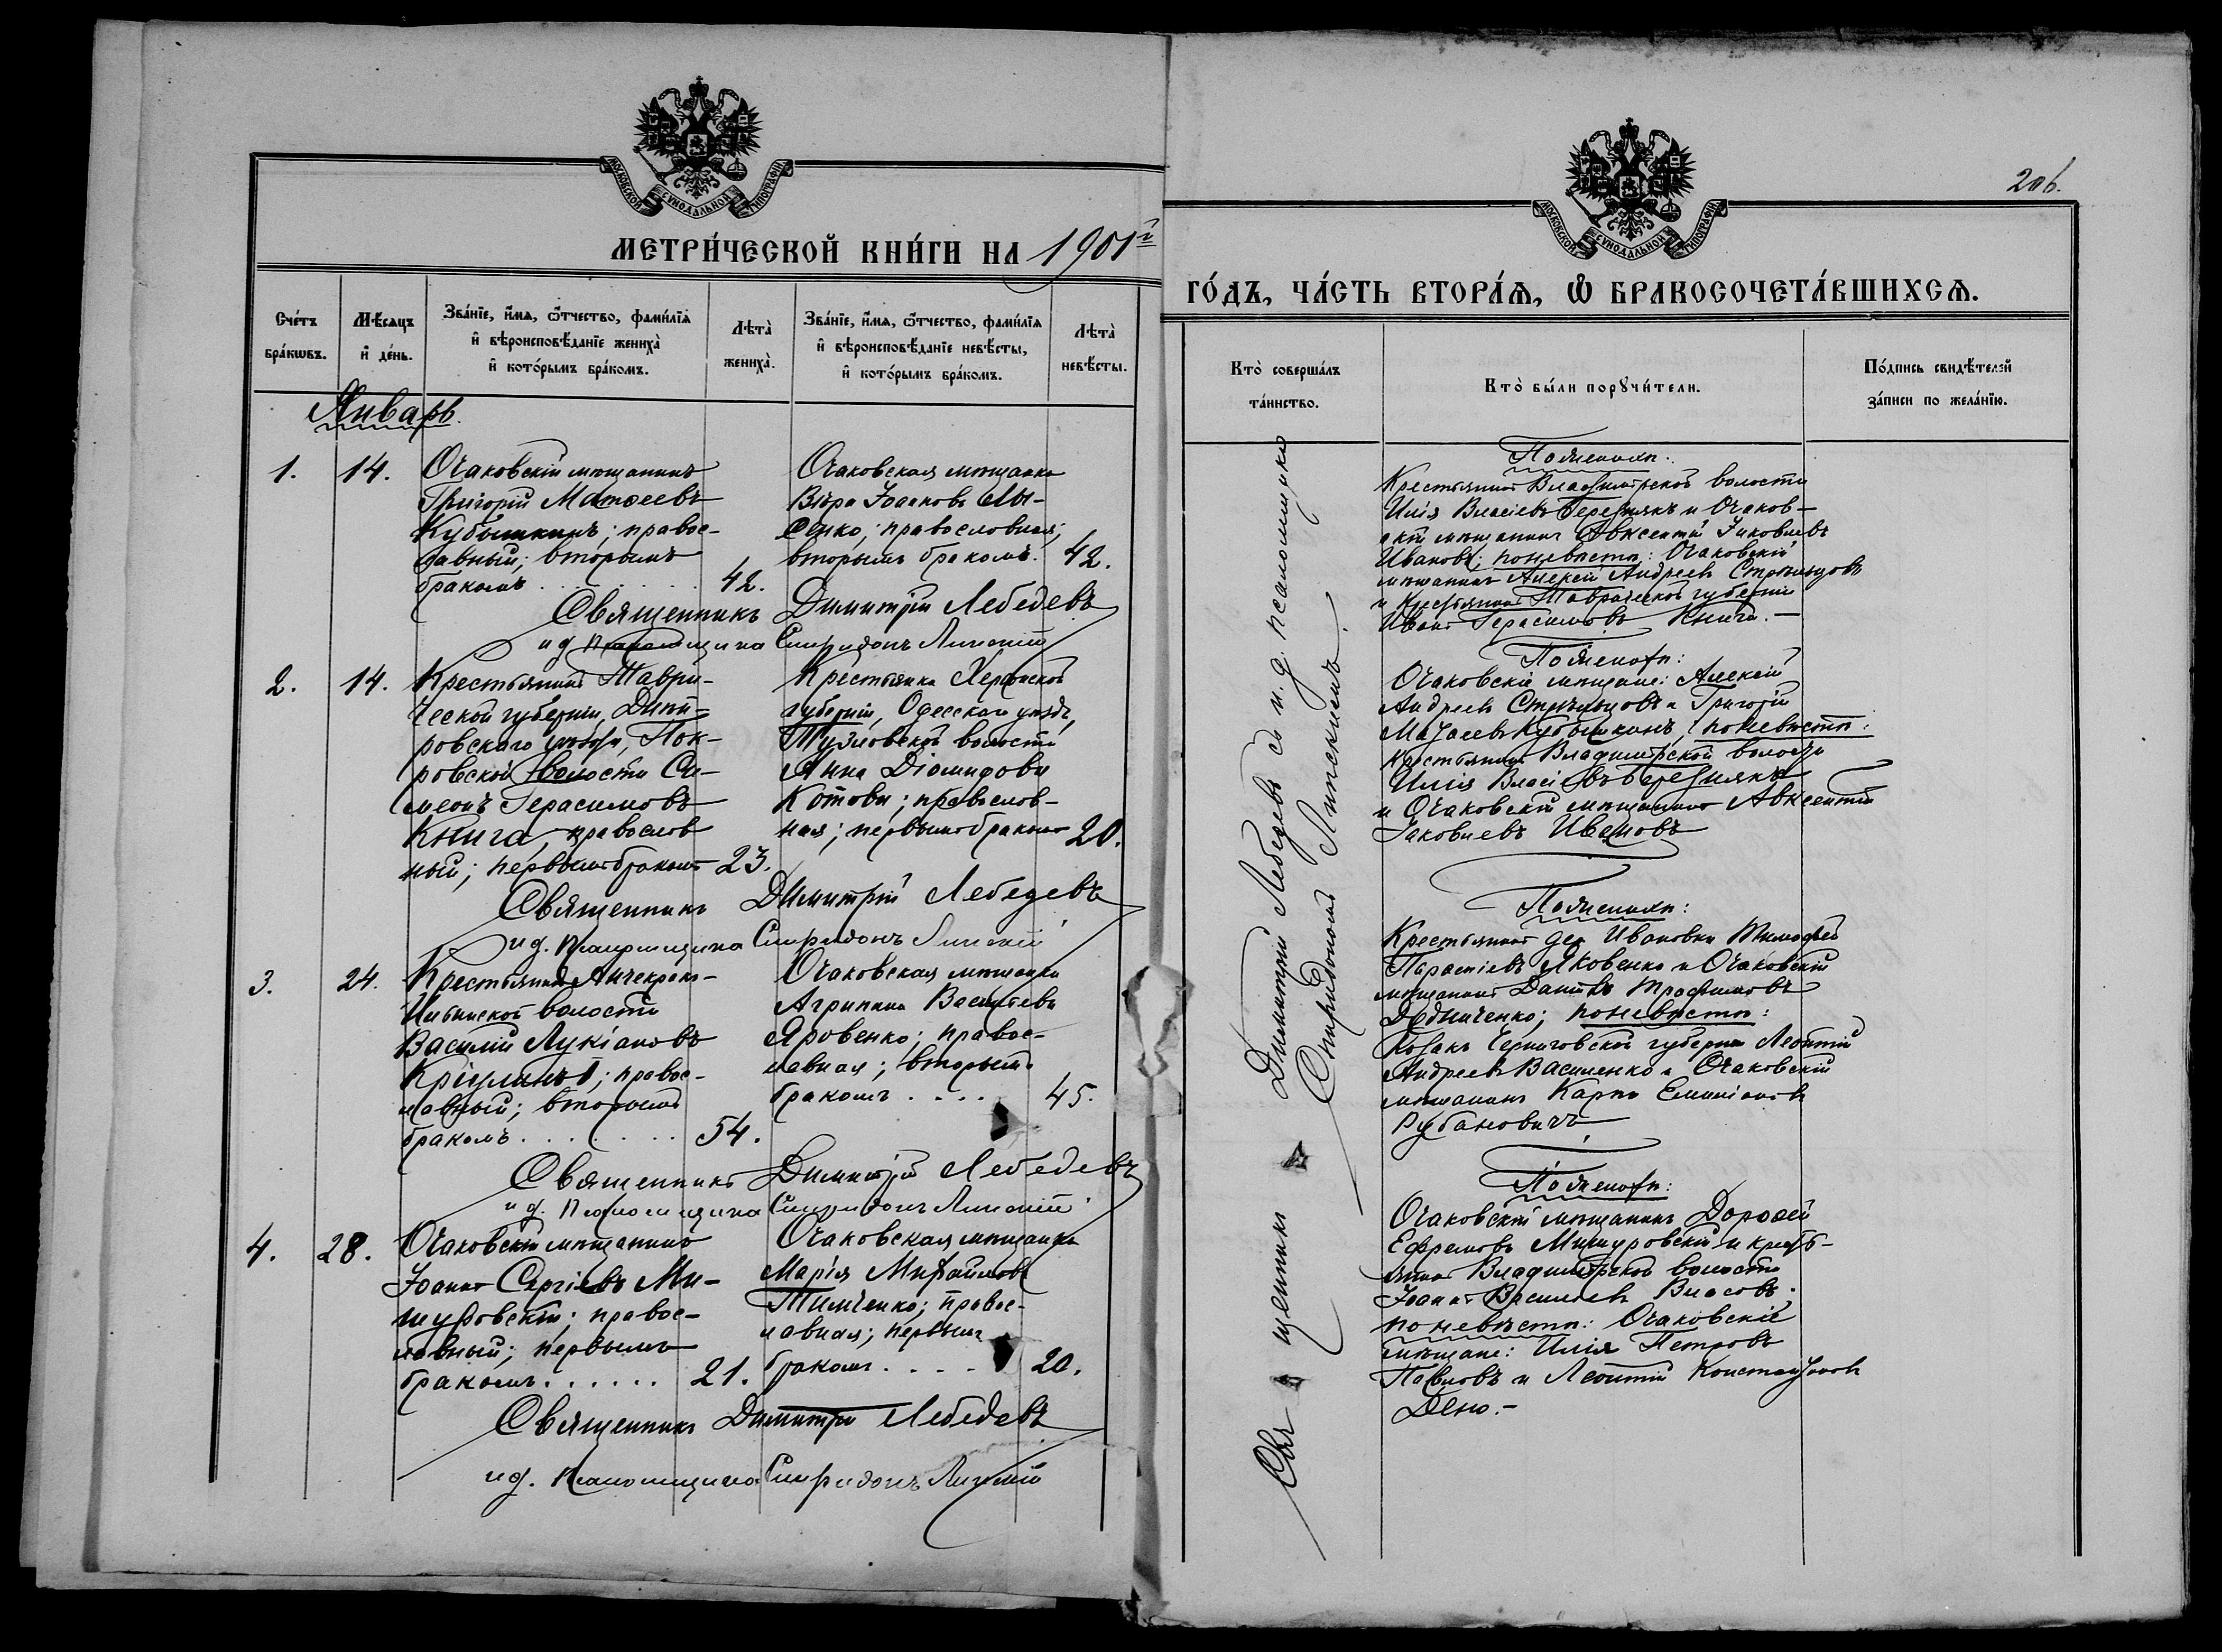 МОСКОВСКОЙ СѴНОДАЛЬНОЙ ТИПОГРАФІИ
МЕТРИ́ЧЕСКОЙ КНИ́ГИ НА 1901й
Сче́тъ бра́кѡвъ.
Мѣ́сяцъ и҆ де́нь.
Зва́нїе, и҆́мѧ, ѻ҆́тчество, фами́лїѧ
и҆ вѣроисповѣ́данїе жениха̀
и҆ кото́рымъ бра́комъ.
Лѣта̀ жениха̀.
Зва́нїе, и҆́мѧ, ѻ҆́тчество, фами́лїѧ
и҆ вѣроисповѣ́данїе невѣ́сты,
и҆ кото́рымъ бра́комъ.
Лѣта̀ невѣ́сты.
Январь
1. 14.
Очаковскій мѣщанинъ
Григорій Матѳеевъ
Кубышкинъ; правос-
лавный; вторымъ
бракомъ 42.
Очаковская мѣщанка
Вѣра Іоаннова Лы-
сенко; православная;
вторымъ бракомъ. 42.
Священникъ Димитрій Лебедевъ
и д псаломщика Спиридонъ Липскій
2. 14.
Крестьянинъ Таври-
ческой губерніи, Днѣп-
ровскаго уѣзда, Пок-
ровской волости Си-
меонъ Герасимовъ
Книга, православ
ный; первымъ бракомъ 23.
Крестьянка Херсонской
губерніи, Одесскаго уѣзда,
Тузловской волости
Анна Діомидова
Котова; православ-
ная; первымъ бракомъ 20.
Священникъ Димитрій Лебедевъ
и д. псаломщика Спиридонъ Липскій
3. 24.
Крестьянинъ Анчекрако-
Ильинской волости
Василій Лукіановъ
правос-
лавный; вторымъ
бракомъ 54.
Очаковская мѣщанка
Агрипина Васильева
Яровенко; правос-
лавная; вторымъ
бракомъ 45.
Священникъ Димитрій Лебедевъ
и д. псаломщика Спиридонъ Липскій
4. 28.
Очаковскій мѣщанинъ
Іоаннъ Сергіевъ Ми-
шуровскій; правос-
лавный; первымъ
бракомъ 21.
Очаковская мѣщанка
Марія Михайлова
Тимченко; правос-
лавная; первымъ
бракомъ 20.
Священникъ Димитрій Лебедевъ
и д. псаломщика Спиридонъ Липскій
206.
МОСКОВСКОЙ СѴНОДАЛЬНОЙ ТИПОГРАФІИ
ГО́ДЪ, ЧА́СТЬ ВТОРА́Ѧ, Ѡ҆ БРАКОСОЧЕТА́ВШИХСѦ.
Кто̀ соверша́лъ
та́инство.
Кто̀ бы́ли порꙋчи́тели.
По́дпись свидѣ́телей
за́писи по жела́нїю.
Священникъ Димитрій Лебедевъ съ и. д. псаломщика
Спиридономъ Липскимъ.
По женихѣ:
Крестьянинъ Владимірской волости
Илія Власіевъ Березнякъ и Очаков-
скій мѣщанинъ Авксентій Іаковлевъ
Ивановъ; по невѣстѣ: Очаковскій
мѣщанинъ Алексѣй Андреевъ Стрѣльцовъ
и крестьянинъ Таврической губерніи
Иванъ Герасимовъ Книга.
По женихѣ:
Очаковскіе мѣщане: Алексѣй
Андреевъ Стрѣльцовъ и Григорій
Матѳеевъ Кубышкинъ, по невѣстѣ:
крестьянинъ Владимірской волости
Илія Власіевъ Березнякъ
и Очаковскій мѣщанинъ Авксентій
Іаковлевъ Ивановъ
По женихѣ:
Крестьянинъ дер. Ивановки Тимофей
Яковенко и Очаковскій
мѣщанинъ Даніилъ Трофимовъ
Дудниченко; по невѣстѣ:
Козакъ Черниговской губерніи Леонтій
Андреевъ Василенко и Очаковскій
мѣщанинъ Карпъ Емиліановъ
Рубановичъ
По женихѣ:
Очаковскій мѣщанинъ Дороѳей
Ефремовъ Мишуровскій и кресть-
янинъ Владимірской волости
Іоаннъ Васильевъ Власовъ.
по невѣстѣ: Очаковскіе
мѣщане: Илія Петровъ
Павловъ и Леонтій Константиновъ